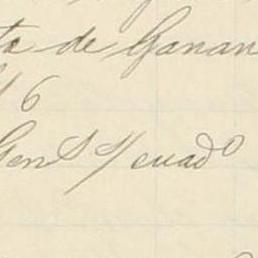 ta de Ganan
16
Genl s/ cuado